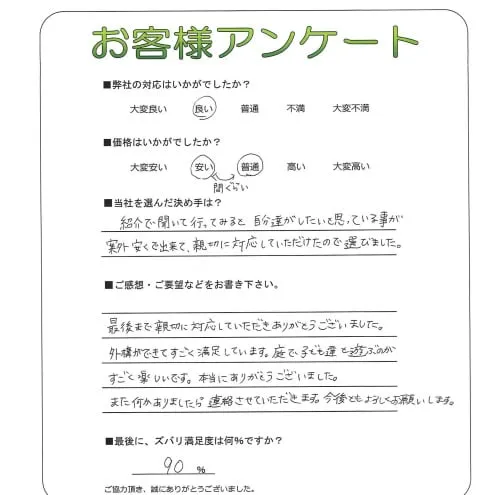 お客様アンケート
■弊社の対応はいかがでしたか？
大変良い 良い 普通 不満 大変不満
■価格はいかがでしたか？
大変安い 安い 普通 高い 大変高い
間ぐらい
■当社を選んだ決め手は？
紹介で聞いて行ってみると 自分達がしたいと思っている事が
案外安くで出来て、親切に対応していただけたので選びました。
■ご感想・ご要望などをお書き下さい。
最後まで親切に対応していただきありがとうございました。
外構ができてすごく満足しています。庭で、子ども達と遊ぶのが
すごく楽しいです。本当にありがとうございました。
また何かありましたら連絡させていただきます。今後ともよろしくお願いします。
■最後に、ズバリ満足度は何%ですか？
90 %
ご協力頂き、誠にありがとうございました。